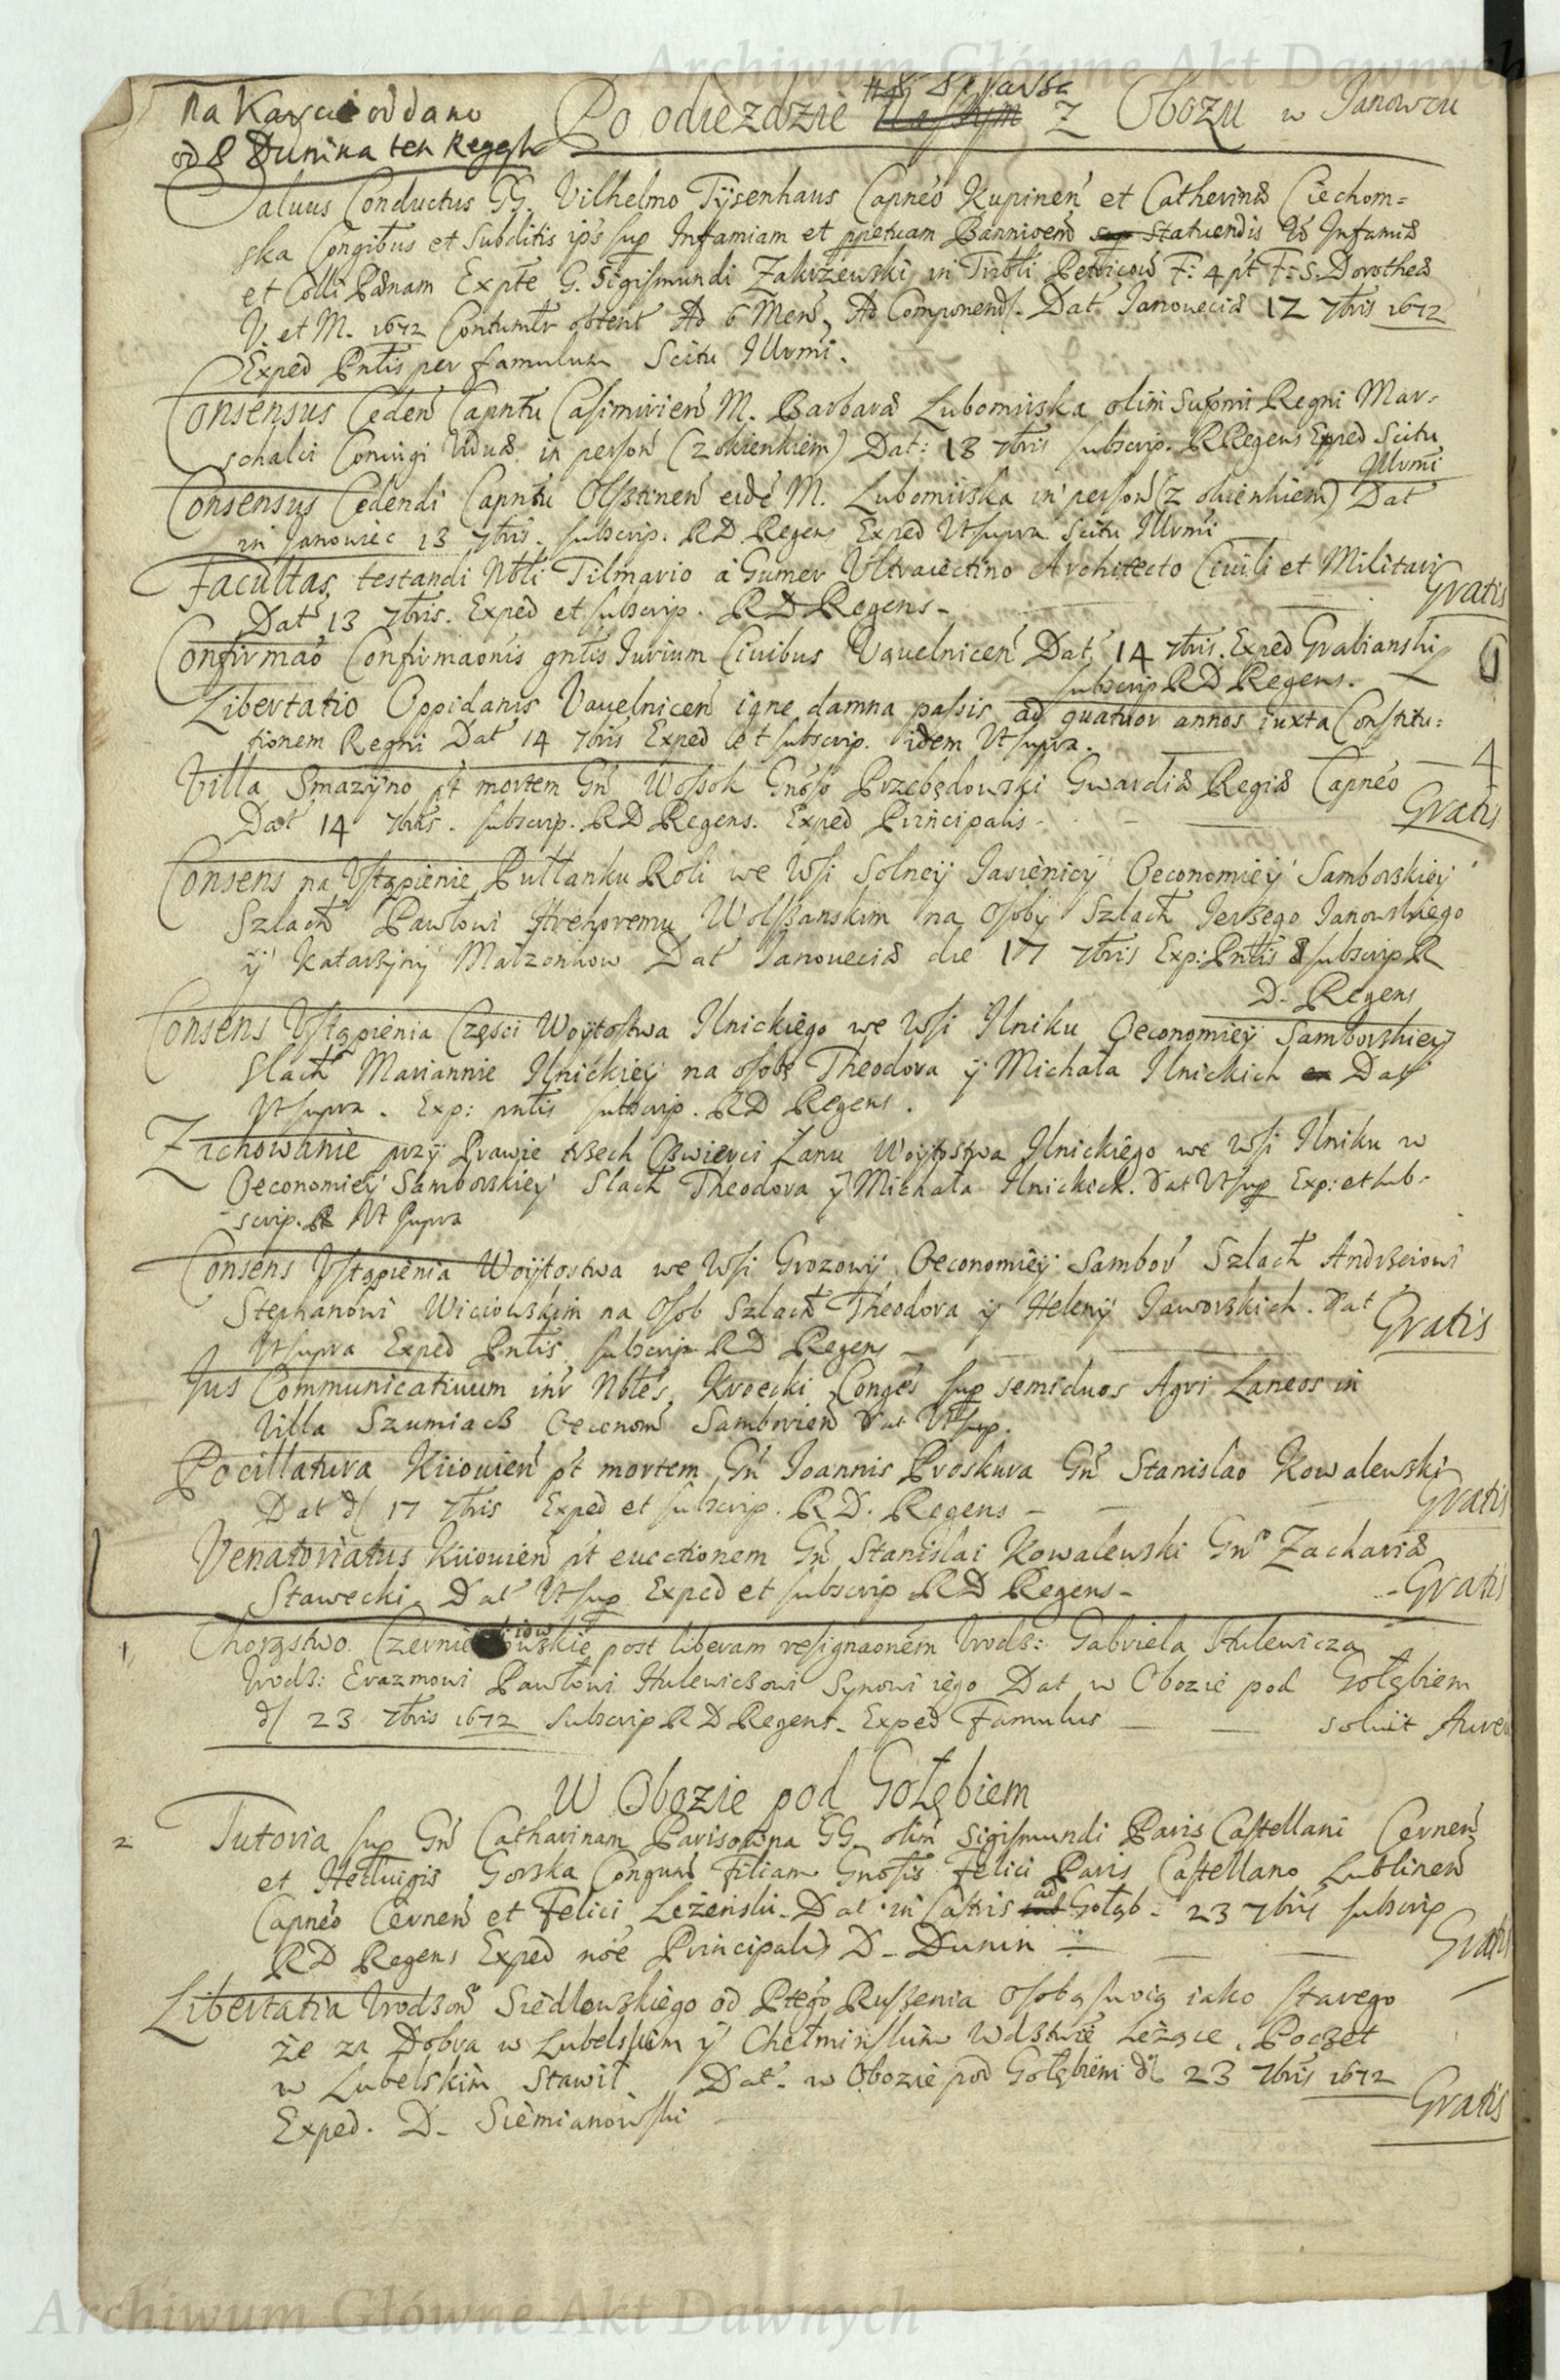 Archiwum Główne Akt Dawnych
na Karcie oddano
od P Dunina ten Regestr
Po odiezdzie z Obozu w Janowcu
Saluus Conductus GG. Vilhelmo Tysenhaus Capneo Kupinen et Catherina Ciechom=
ska Congibus et Subditis ips sup Infamiam et ppetuam Bannioem statuendis Infamia
et Colli Pænam Expte G. Sigismundi Zakrzewski in Tribli Petricow F: 4 pt F: S. Dorothea
V. et M. 1672 Contumtr obtent Ad 6 Mens, Ad Componend. Dat Janouecia 12 7bris 1672
Exped Pntis per famulum Scitu Illrmi.
Consensus Ceden Capntu Casimirien M. Barbara Lubomirska olim Supmi Regni Mar=
schalci Coniugi Vidua in person (z okienkiem) Dat: 13 7bris subscrip. R Regens Exped Scitu
Illrmi
Consensus Cedendi Capntu Olsztinen eidē M. Lubomirska in person (z okienkiem) Dat
in Janowiec 13 7bris. subscrip. RD Regens Exped Vtsupra Scitu Illrmi
Facultas testandi Nbli Tilmario à Gumer Vltraiectino Architecto Ciuili et Militari
Gratis
Dat 13 7bris. Exped et subscrip. RD Regens -
Confirmao Confirmaonis gnlis Iurium Ciuibus Vauelnicen Dat 14 7bris. Exped Grabianski
subscrip RD Regens.
Libertatio Oppidanis Vauelnicen igne damna passis ad quatuor annos iuxta Constitu=
tionem Regni Dat 14 7bris Exped et subscrip. idem Vtsupra.
4
Villa Smazyno pt mortem Gn Wossok Gnoso Przebędowski Gwardia Regia Capneo
Gratis
Dat 14 7bris. subscrip. RD Regens. Exped Principalis
Consens na Vstąpienie Pułłanku Roli we Wsi Solney Iasienicy Oeconomiey Samborskiey
Szlach Pawłowi Hrehoremu Wolszanskim na Osoby Szlach Ierzego Ianowskiego
y Katarzyny Małzonkow Dat Ianouecia die 17 7bris Exp: Pntis subscrip R
D. Regens
Consens Vstąpienia Części Woytostwa Ilnickiego we Wsi Ilniku Oeconomiey Samborskiey
Slach Mariannie Ilnickiey na osobę Theodora y Michała Ilnickich Dat
Vtsupra. Exp: pntis subscrip. RD Regens.
Zachowanie przy Prawie trzech Czwierci Łanu Woytostwa Ilnickiego we Wsi Ilniku w
Oeconomiey Samborskiey Slach Theodora y Michała Ilnickich. Dat Vtsup Exp: et sub=
scrip. Vt Supra
Consens Vstąpienia Woytostwa we Wsi Grozowy Oeconomiey Sambor Szlach Andrzeiowi
Stephanowi Wiciowskim na Osob Szlach Theodora y Heleny Iaworskich. Dat
Gratis
Vtsupra Exped Pntis subscrip RD Regens -
Ius Communicatiuum inr Nbles Kroecki Conges sup semiduos Agri Laneos in
Villa Szumiacz Oeconom Samborien Dat Vtsup.
Pocillatura Kiiouien pt mortem Gn Ioannis Proskura Gn Stanislao Kowalewski
Gratis
Dat d 17 7bris Exped et subscrip. RD. Regens -
Venatoriatus Kiiouien pt euectionem Gn Stanislai Kowalewski Gno Zacharia
Stawecki. Dat Vtsup Exped et subscrip RD Regens -
Gratis
1. Chorąstwo post liberam resignaonem Urodz: Gabriela Hulewicza
Urodz: Erazmowi Pawłowi Hulewiczowi Synowi iego Dat w Obozie pod Gołębiem
d 23 7bris 1672 Subscrip RD Regens. Exped Famulus — — soluit
W Obozie pod Gołębiem
2 Tutoria sup Gn Catharinam Parisowna GG. olim Sigismundi Paris Castellani Cernen
et Heduigis Gorska Congum Filiam Gnosis Felici Paris Castellano Lublinen
Capneo Cernen et Felici Leżenski. Dat in Castris ad Gołąb. 23 7bris subscrip
Gratis
RD Regens Exped noe Principalis D. Dunin
Libertatia Urodzon Siedlewskiego od Ptego Ruszenia osobą swoią iako starego
że za Dobra w Lubelskim y Chełminskim Wdztwie leżące, Poczet
w Lubelskim Stawił. Dat. w Obozie pod Gołębiem d 23 7bris 1672
Gratis
Exped. D. Siemianowski
Archiwum Główne Akt Dawnych